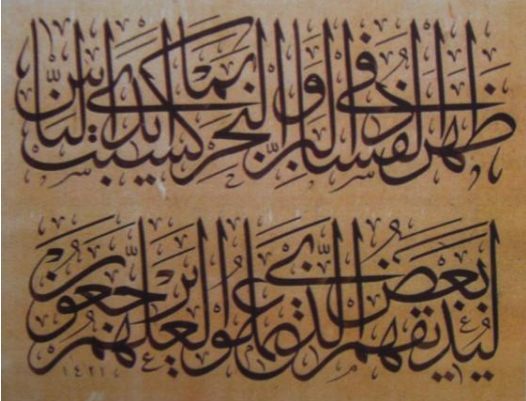 ظهر الفساد في البر والبحر بما كسبت أيدي الناس
ليذيقهم بعض الذي عملوا لعلهم يرجعون
١٤٢١